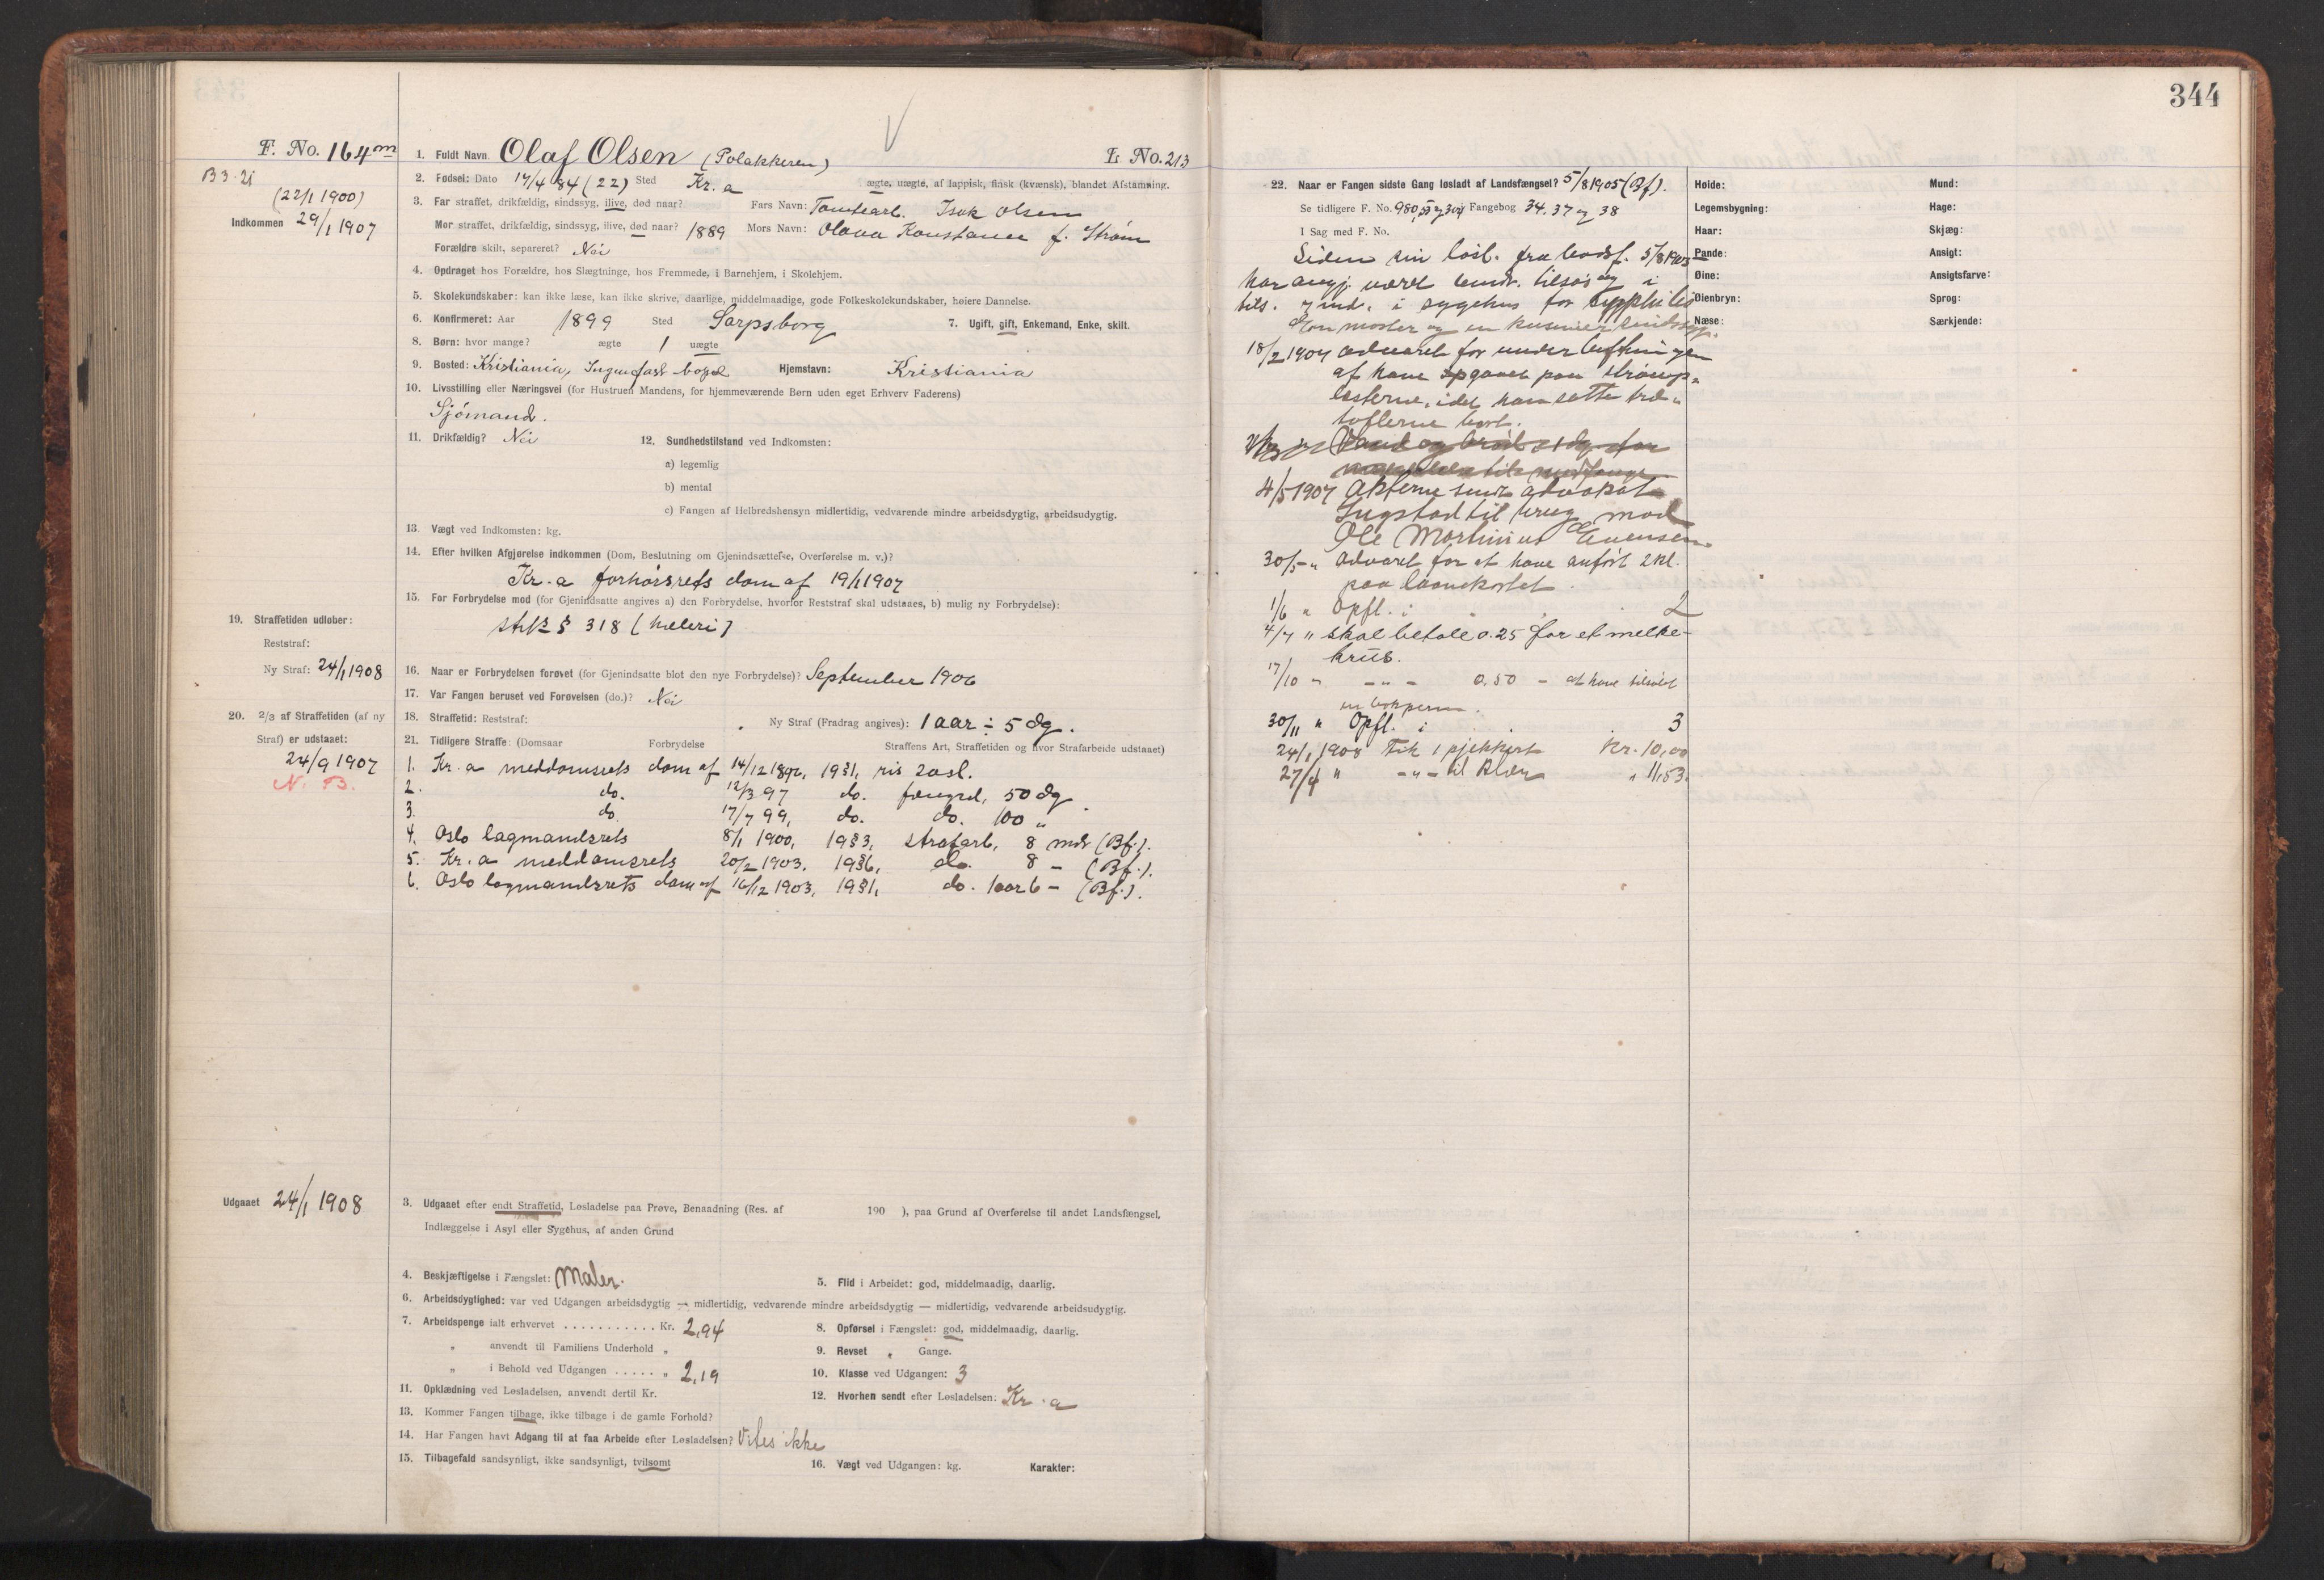 344
F. No. 164 m
B 3. 21
(22/1 1900)
Indkommen 29/1 1907
1. Fuldt Navn Olaf Olsen (Polakkeren) L. No. 213
2. Fødsel: Dato 17/4 84 (22) Sted Kr.a ægte, uægte, af lappisk, finsk (kvænsk), blandet Afstamning.
3. Far straffet, drikfældig, sindssyg, ilive, død naar? Fars Navn: Tomtearb. Isak Olsen
Mor straffet, drikfældig, sindssyg, ilive, død naar? 1889 Mors Navn: Olava Konstance f. Strøm
Forældre skilt, separeret? Nei
4. Opdraget hos Forældre, hos Slægtninge, hos Fremmede, i Barnehjem, i Skolehjem.
5. Skolekundskaber: kan ikke læse, kan ikke skrive, daarlige, middelmaadige, gode Folkeskolekundskaber, høiere Dannelse.
6. Konfirmeret: Aar 1899 Sted Sarpsborg 7. Ugift, gift, Enkemand, Enke, skilt.
8. Børn: hvor mange? ægte 1 uægte
9. Bosted: Kristiania, Ingen fast bopæl Hjemstavn: Kristiania
10. Livsstilling eller Næringsvei (for Hustruen Mandens, for hjemmeværende Børn uden eget Erhverv Faderens)
Sjömand.
11. Drikfældig? Nei 12. Sundhedstilstand ved Indkomsten:
a) legemlig
b) mental
c) Fangen af Helbredshensyn midlertidig, vedvarende mindre arbeidsdygtig, arbeidsudygtig.
13. Vægt ved Indkomsten: kg.
14. Efter hvilken Afgjørelse indkommen (Dom, Beslutning om Gjenindsættelse, Overførelse m. v.)?
Kr.a forhörsrets dom af 19/1 1907
15. For Forbrydelse mod (for Gjenindsatte angives a) den Forbrydelse, hvorfor Reststraf skal udstaaes, b) mulig ny Forbrydelse):
strl § 318 (heleri)
19. Straffetiden udløber:
Reststraf:
Ny Straf: 24/1 1908
16. Naar er Forbrydelsen forøvet (for Gjenindsatte blot den nye Forbrydelse)? September 1906
17. Var Fangen beruset ved Forøvelsen (do.)? Nei
20. 2/3 af Straffetiden (af ny
Straf) er udstaaet:
24/9 1907
N. B.
18. Straffetid: Reststraf: Ny Straf (Fradrag angives): 1 aar ÷ 5 dg.
21. Tidligere Straffe: (Domsaar Forbrydelse Straffens Art, Straffetiden og hvor Strafarbeide udstaaet)
1. Kr.a meddomsrets dom af 14/12 1896, 19§1, ris 20sl.
2. do. 12/3 97 do. fængsel, 50 dg
3. do. 17/7 99, do. do. 100 "
4. Oslo lagmandsrets 8/1 1900, 19§3, strafarb, 8 mdr (Bf.).
5. Kr.a meddomsrets 20/2 1903. 19§6, do. 8 - (Bf.).
6. Oslo lagmandsrets dom af 16/12 1903, 19§1, do. 1 aar 6 - (Bf.).
Udgaaet 24/1 1908
3. Udgaaet efter endt Straffetid, Løsladelse paa Prøve, Benaadning (Res. af 190 ), paa Grund af Overførelse til andet Landsfængsel,
Indlæggelse i Asyl eller Sygehus, af anden Grund
4. Beskjæftigelse i Fængslet: Maler. 5. Flid i Arbeidet: god, middelmaadig, daarlig.
6. Arbeidsdygtighed: var ved Udgangen arbeidsdygtig — midlertidig, vedvarende mindre arbeidsdygtig — midlertidig, vedvarende arbeidsudygtig.
7. Arbeidspenge ialt erhvervet . . . . . . . . . . . Kr. 2,94 8. Opførsel i Fængslet: god, middelmaadig, daarlig.
" anvendt til Familiens Underhold " 9. Revset " Gange.
" i Behold ved Udgangen . . . . . " 2,19 10. Klasse ved Udgangen: 3
11. Opklædning ved Løsladelsen, anvendt dertil Kr. 12. Hvorhen sendt efter Løsladelsen: Kr.a
13. Kommer Fangen tilbage, ikke tilbage i de gamle Forhold?
14. Har Fangen havt Adgang til at faa Arbeide efter Løsladelsen? Vites ikke
15. Tilbagefald sandsynligt, ikke sandsynligt, tvilsomt 16. Vægt ved Udgangen: kg. Karakter:
22. Naar er Fangen sidste Gang løsladt af Landsfængsel? 5/8 1905 (Bf).
Se tidligere F. No. 980, 53 og 304 Fangebog 34. 37 og 38
I Sag med F. No.
Siden sin lösl. fra landsf. 5/8 1905
har angj. været tilsös og i
tils. 7 md. i sygehus for syphilis
Hans moster og en kusine sindssyg.
18/2 1907 advaret for under luftningen
af have paa
idet han satte træ-
toflerne bort.
Vand og bröd dg for
til medfange
4/5 1907 Akterne sendt advokat
Lugstad til brug mod
Ole Martinius Evensen.
30/5 " Advaret for at have anfört 2kl.
paa laanekortet.
1/6 " Opfl. i 2
4/7 " Skal betale 0.25 for et melke-
krus.
17/10 " - " - 0.50 - at have tilsölet
en bokperm.
30/11 " Opfl. i 3
24/1 1908 Fik 1 pjekkert Kr. 10,00
27/4 " - " - til Klær " 11,53.
Høide:
Legemsbygning:
Haar:
Pande:
Øine:
Øienbryn:
Næse:
Mund:
Hage:
Skjæg:
Ansigt:
Ansigtsfarve:
Sprog:
Særkjende: